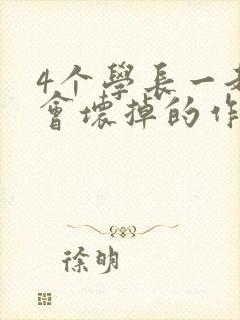 4个學長一
會壞掉的作
徐明